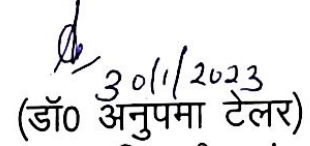 30/1/2023
(डॉ0 अनुपमा टेलर)